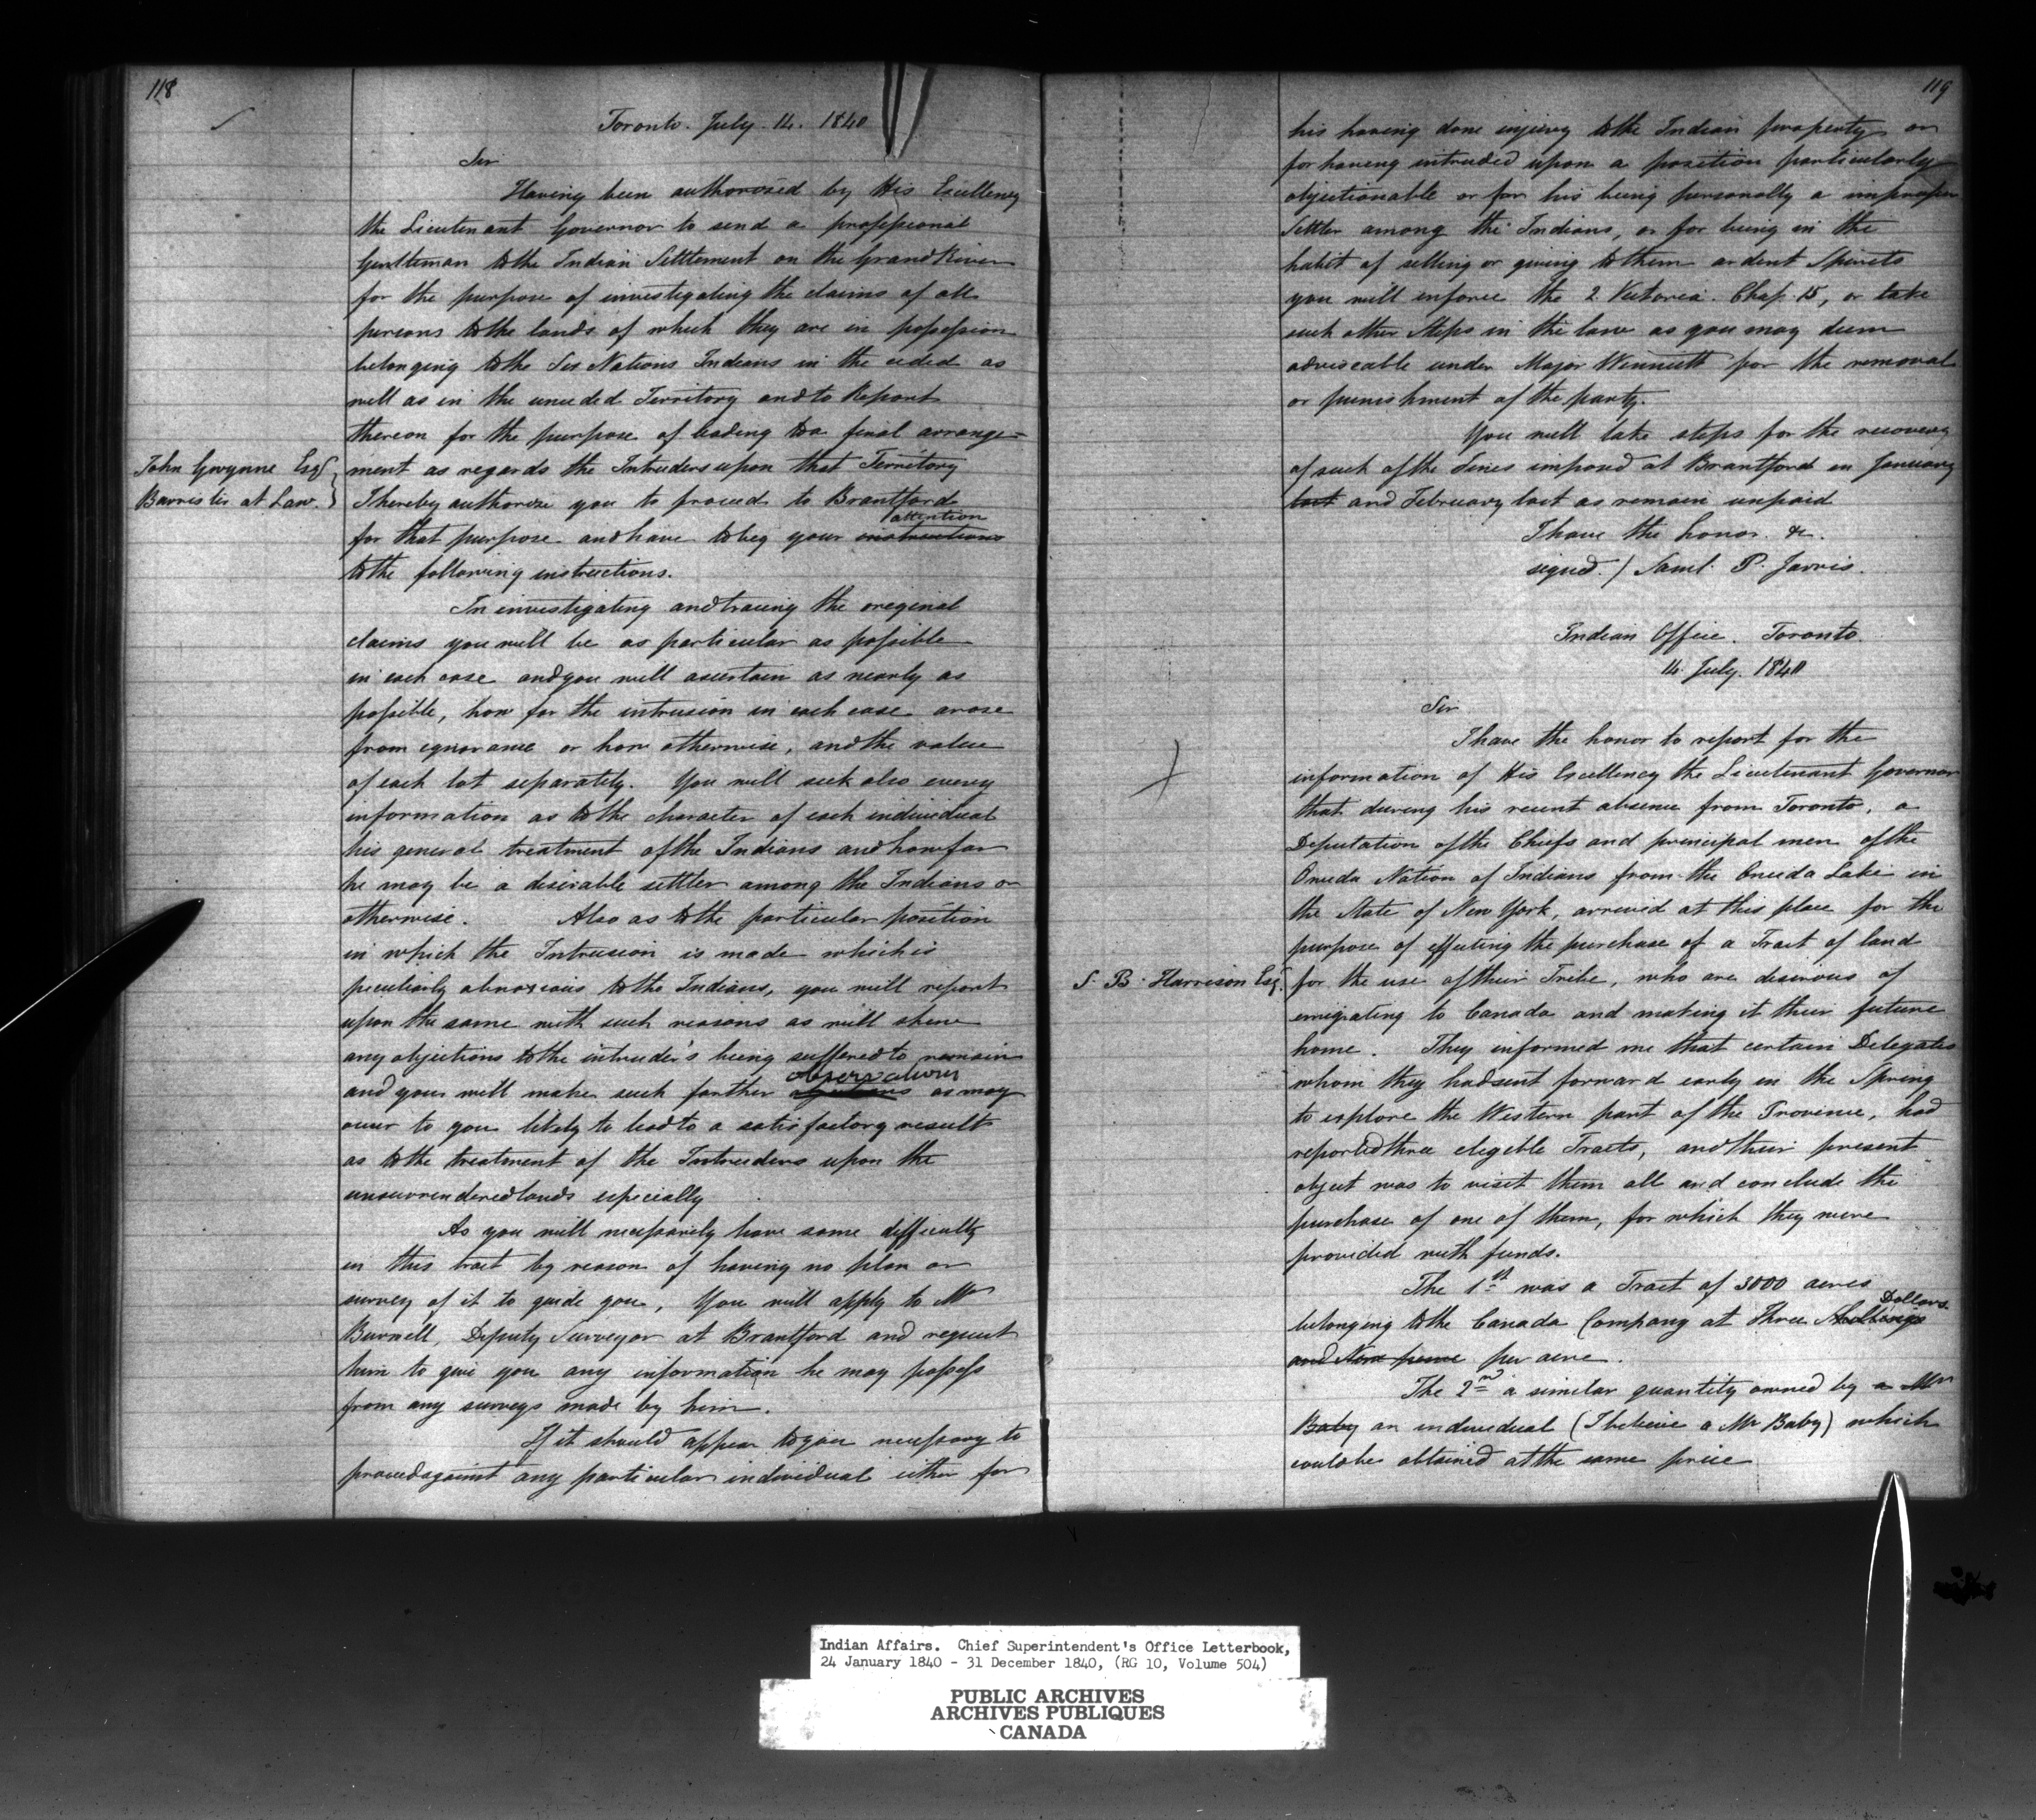 118
Toronto. July 14. 1840
Sir
Having been authorised by His Excellency
the Lieutenant Governor to send a professional
Gentleman to the Indian Settlement on the Grand River
for the purpose of investigating the claims of all
persons to the lands of which they are in possession
belonging to the Six Nations Indians in the ceded as
well as in the unceded Territory and to Report
thereon for the purpose of leading to a final arrange=
John Gwynne Esqr
Barrister at Law.
ment as regards the Intruders upon that Territory
I hereby authorize you to proceed to Brantford
attention
for that purpose and have to beg your instructions
to the following instructions.
In investigating and tracing the original
claims you will be as particular as possible
in each case and you will ascertain as nearly as
possible, how far the intrusion in each case arose
from ignorance or how otherwise, and the value
of each lot separately. You will seek also every
information as to the character of each individual
his general treatment of the Indians and how far
he may be a desirable settler among the Indians or
otherwise. Also as to the particular position
in which the Intrusion is made which is
peculiarly obnoxious to the Indians, you will report
upon the same with such reasons as will shew
any objections to the intruder's being suffered to remain
observations
and you will make such further objections as may
occur to you likely to lead to a satisfactory result
as to the treatment of the Intruders upon the
unsurrendered lands especially
As you will necessarily have some difficulty
in this tract by reason of having no plan or
survey of it to guide you, You will apply to Mr
Burwell, Deputy Surveyor at Brantford and request
him to give you any information he may possess
from any surveys made by him.
If it should appear to you necessary to
proceed against any particular individual either for
119
his having done injury to the Indian property or
for having intruded upon a position particularly
objectionable or for his being personally a improper
Settler among the Indians, or for being in the
habit of selling or giving to them ardent Spirits
you will enforce the 2 Victoria. Chap. 15, or take
such other Steps in the law as you may deem
adviseable under Major Winniett for the removal
or punishment of the party.
You will take steps for the recovery
of such of the Fines imposed at Brantford in January
last and February last as remain unpaid
I have the honor. &c.
signed. / Saml. P. Jarvis.
Indian Office. Toronto.
14. July. 1840
Sir
I have the honor to report for the
information of His Excellency the Lieutenant Governor
that during his recent absence from Toronto, a
Deputation of the Chiefs and principal men of the
Oneida Nation of Indians from the Oneida Lake in
the State of New York, arrived at this place for the
purpose of effecting the purchase of a Tract of land
S. B. Harrison Esq.
for the use of their Tribe, who are desirous of
emigrating to Canada and making it their future
home. They informed me that certain Delegates
whom they had sent forward early in the Spring
to explore the Western part of the Province, had
reported three eligible Tracts, and their present
object was to visit them all and conclude the
purchase of one of them, for which they were
provided with funds.
The 1st was a Tract of 3000 acres
Dollars
belonging to the Canada Company at Three Shillings
and Nine pence per acre.
The 2nd a similar quantity owned by a Mr
Baby an individual (I believe a Mr Baby) which
could be obtained at the same price
Indian Affairs. Chief Superintendent's Office Letterbook,
24 January 1840 - 31 December 1840, (RG 10, Volume 504)
PUBLIC ARCHIVES
ARCHIVES PUBLIQUES
CANADA